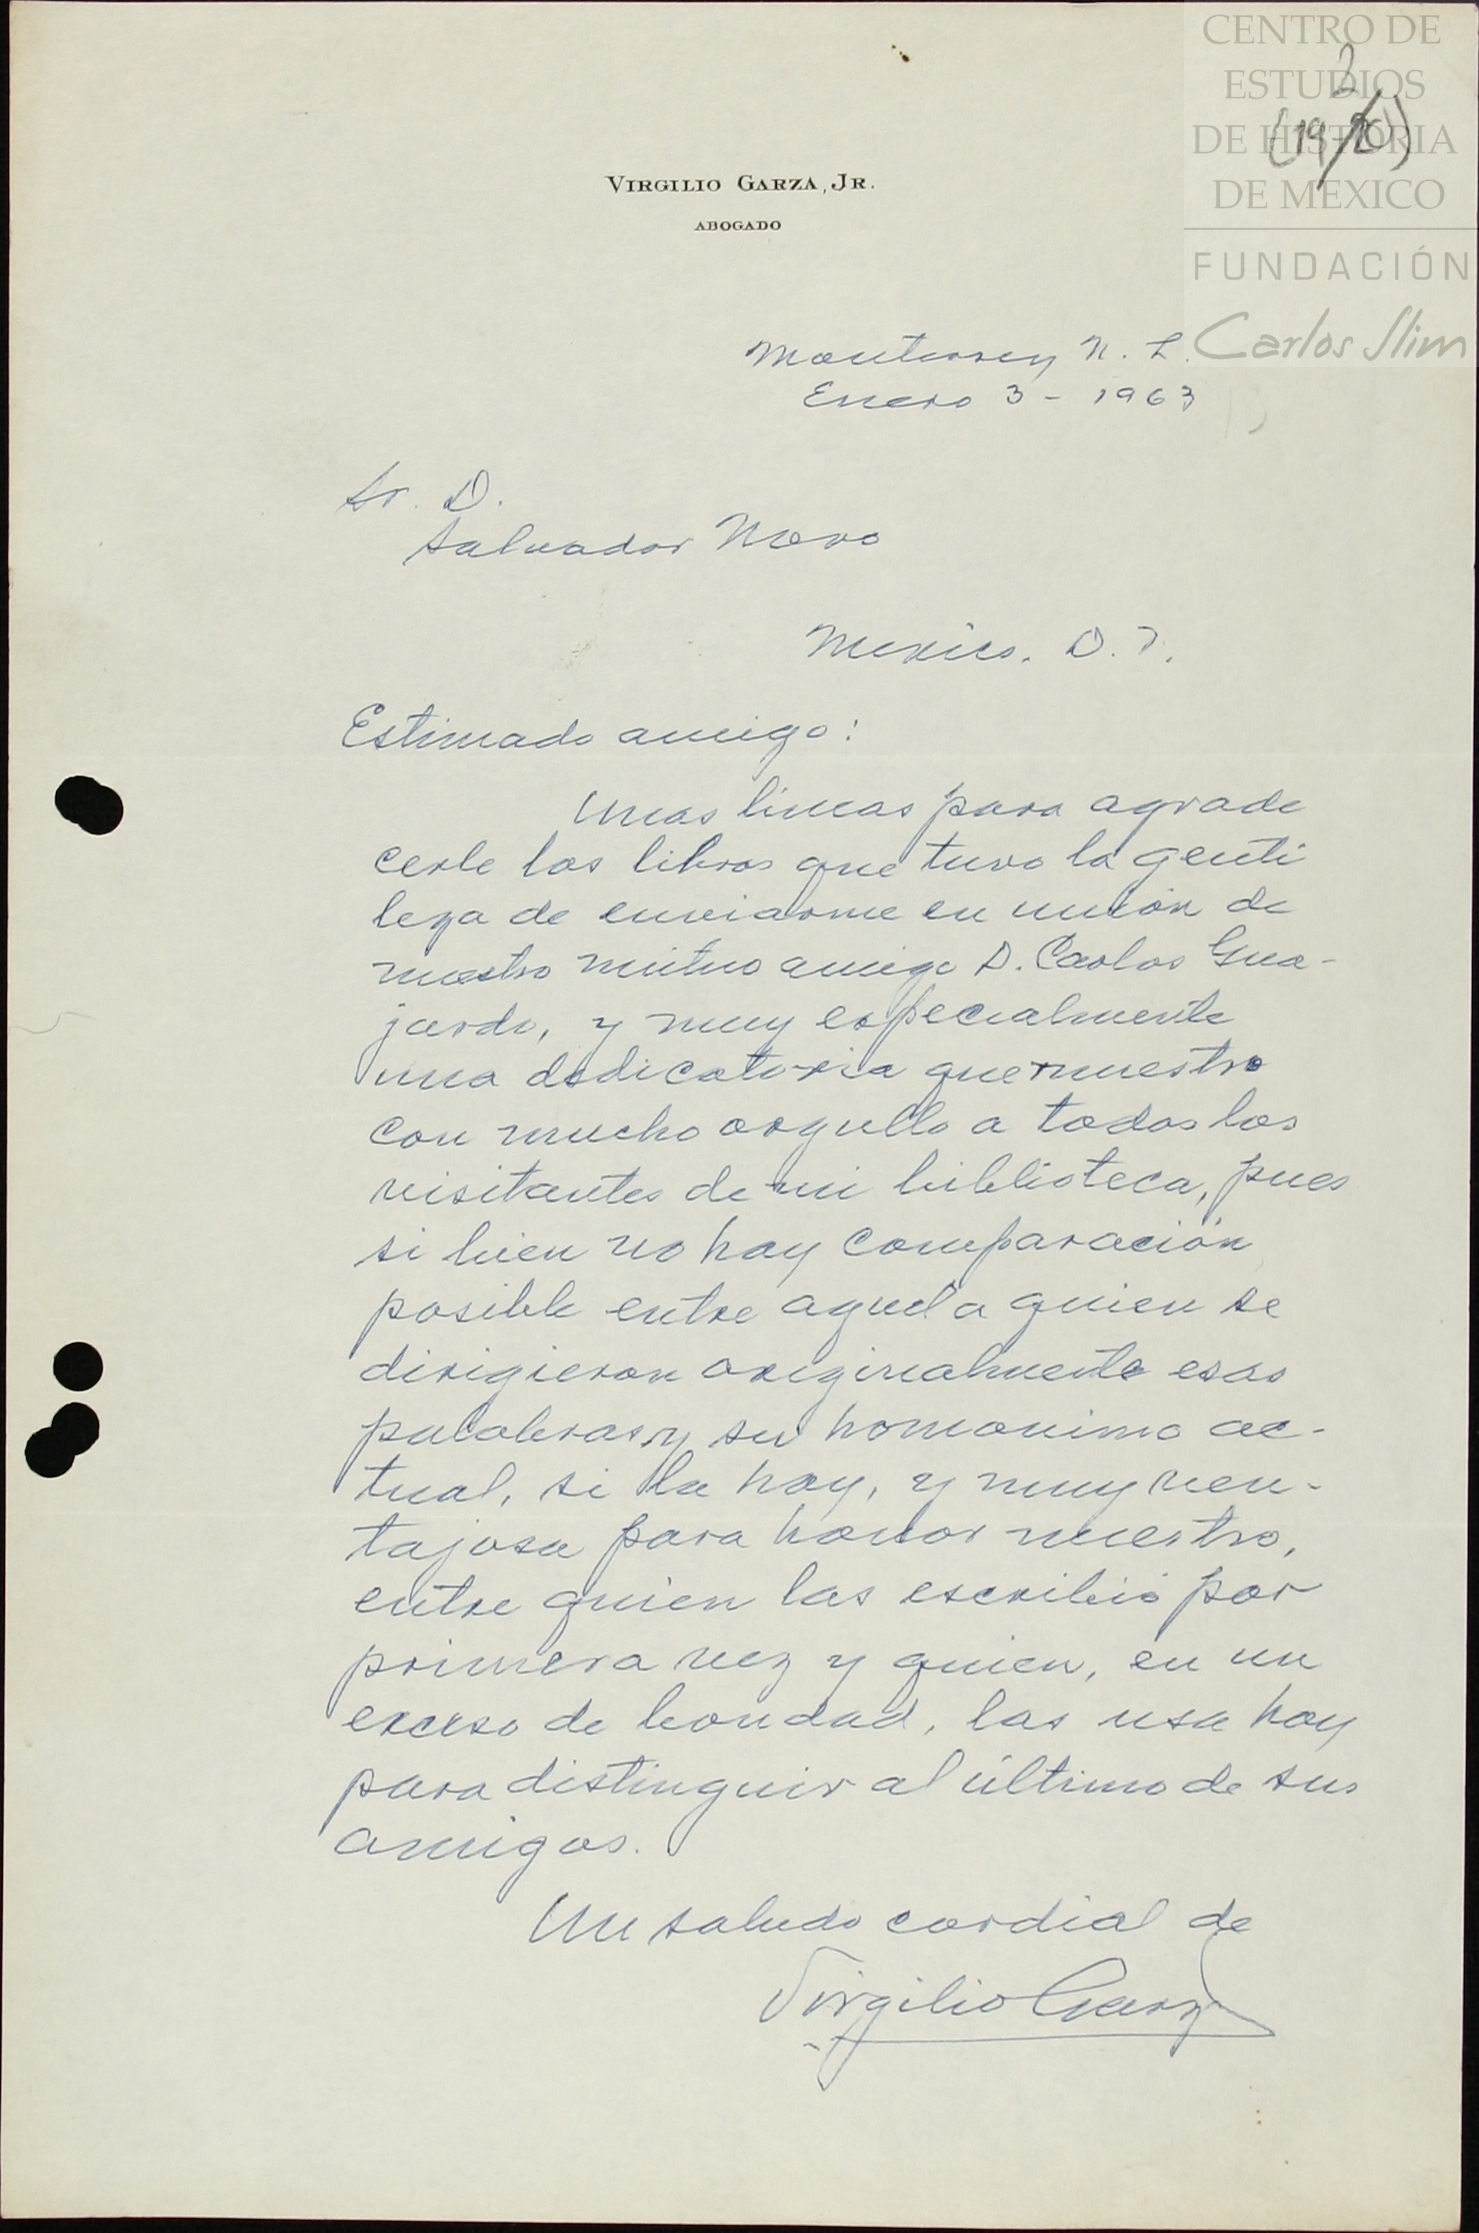 CENTRO DE
ESTUDIOS
DE HISTORIA
DE MEXICO
FUNDACIÓN
Carlos Slim
2
VIRGILIO GARZA, JR.
ABOGADO
Monterrey N. L.
Enero 3 - 1963
Sr. D.
Salvador Novo
Mexico. D. F.
Estimado amigo:
Unas lineas para agrade
cerle los libros que tuvo la genti
leza de enviarme en unión de
nuestro mutuo amigo D. Carlos Gua-
jardo, y muy especialmente
una dedicatoria que muestro
con mucho orgullo a todos los
visitantes de mi biblioteca, pues
si bien no hay comparación
posible entre aquel a quien se
dirigieron originalmente esas
palabras y su homonimo ac-
tual, si la hay, y muy ven-
tajosa para honor nuestro,
entre quien las escribió por
primera vez y quien, en un
exceso de bondad, las usa hoy
para distinguir al último de sus
amigos.
Un saludo cordial de
Virgilio Garza